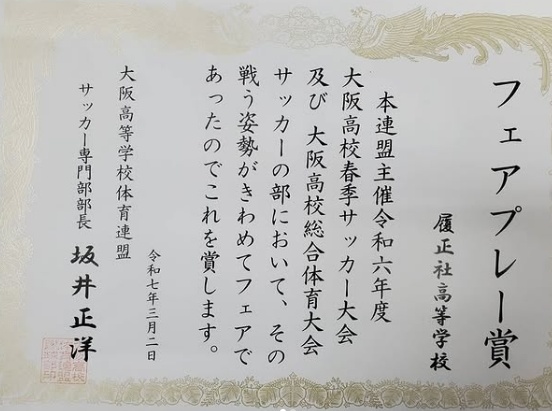 フェアプレー賞
履正社高等学校
本連盟主催令和六年度
大阪高校春季サッカー大会
及び 大阪高校総合体育大会
サッカーの部において、その
戦う姿勢がきわめてフェアで
あったのでこれを賞します。
令和七年三月二日
大阪高等学校体育連盟
サッカー専門部部長 坂井正洋